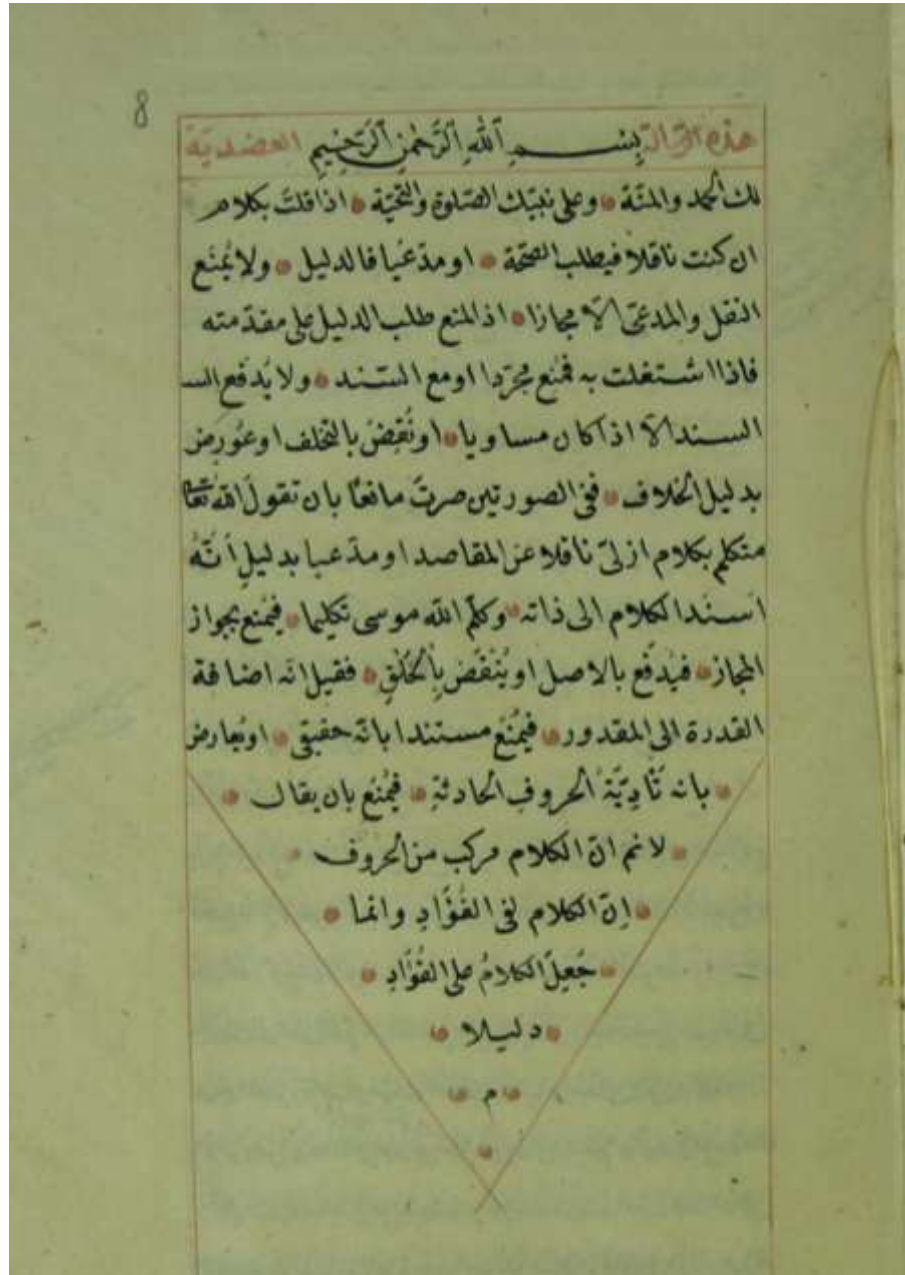 8
هذه الرسالة بِسْمِ ٱللهِ ٱلرَّحْمٰنِ ٱلرَّحِيمِ العضديّة
لك الحمد والمنّة وعلى نبيّك الصّلوة والتّحيّة اذا قلتَ بكلام
ان كنت ناقلا فيطلب الصّحّة او مدّعيا فالدليل ولا يُمنَع
النقل والمدعَى الّا مجازا اذ المنع طلب الدليل على مقدّمته
فاذا اشتغلت به فمُنع مجرّدا او مع السّند ولا يُدفَع الس
السند الّا اذا كان مساويا او نُقِضَ بالتخلف او عُورِض
بدليل الخلاف ففي الصورتين صرتَ مانعًا بان تقولَ اللّٰه تعا
متكلم بكلام ازليّ ناقلا عن المقاصد او مدّعيا بدليلِ اَنَّهُ
اَسنَد الكلام الى ذاته وكلّم اللّه موسى تكليما فيُمنع بجواز
المجاز فيُدفَع بالاصل او يُنْقَضُ بِالْخَلْقِ فقيل انه اضافة
القدرة الى المقدور فيُمنَعُ مستندا بانّه حقيقي او يُعارض
بانه تَأدِيَّةُ الحروفِ الحادثةِ فيُمنَع بان يقال
لانم انّ الكلام مركب من الحروف
اِنّ الكلام لفى الفُؤَادِ وانما
جُعِلَ الكلامُ على الفُؤَادِ
دليلا
م